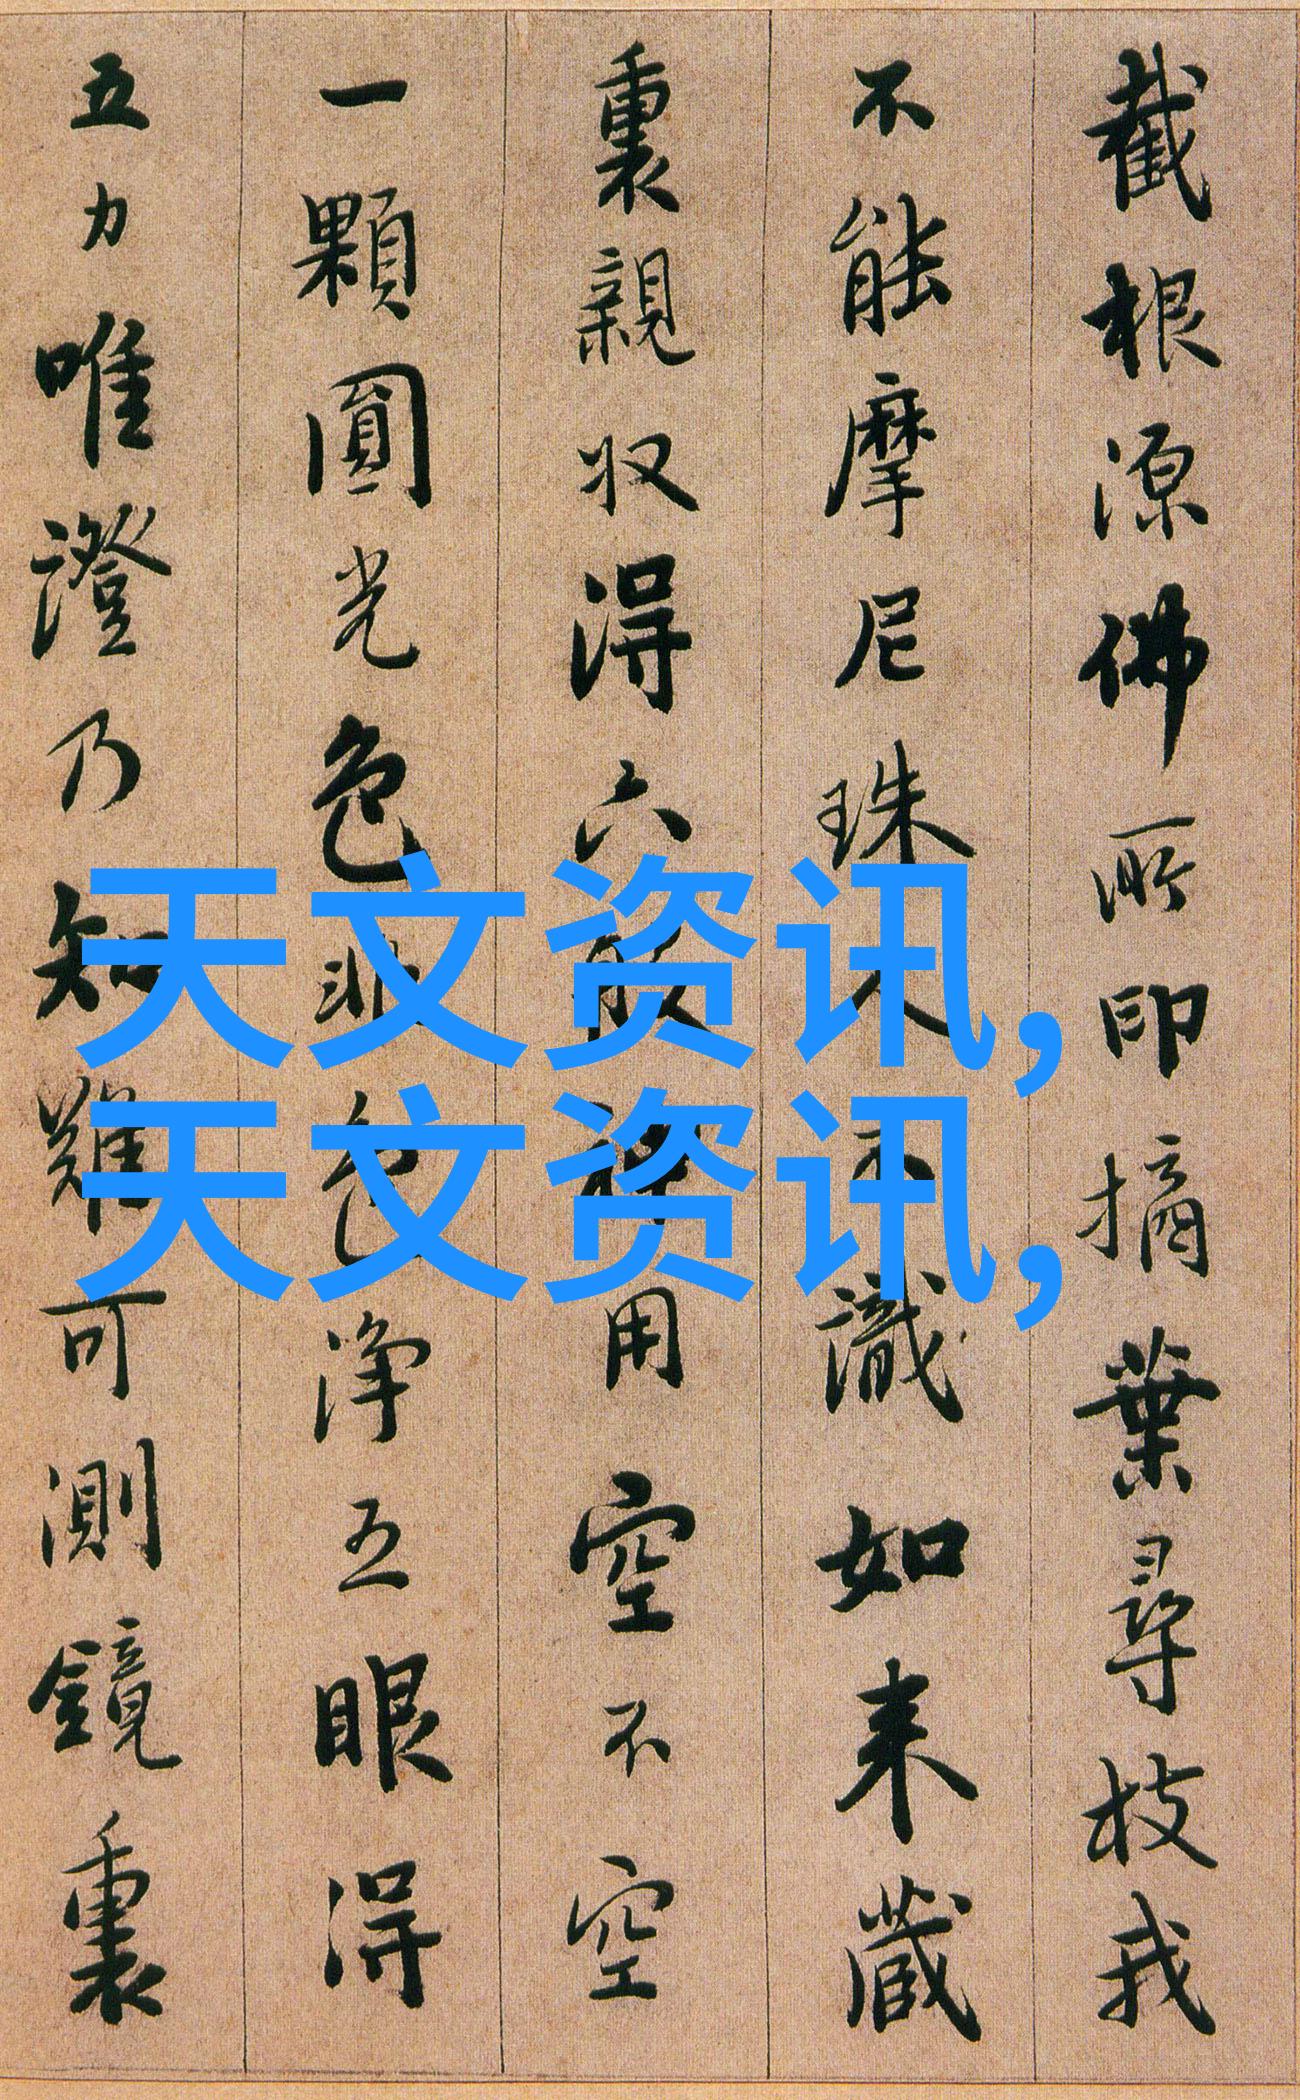 截根源佛所印摘葉尋枝我
不能摩尼珠人不識如来藏
裏親収得六般神用空不空
一顆圓光色非色淨五眼得
五力唯證乃知難可測鏡裏
天文资讯,
天文资讯,